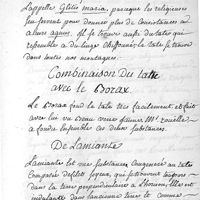 L'appelle Glitz maria, parceque les religieuses
s'en servent pour donner plus de consistance a
leurs agnus. Il se trouve aussi du talc qui
ressemble a du linge chiffonné, le talc se trouve
dans toutes nos montagnes.
Combinaison Du talc
avec le Borax.
Le Borax fond le talc tres facilement, et fait
avec lui un beau verre
a fondre ensemble ces deux substances.
De Lamiante
Lamiante est une substance
composée de filets soyeux, qui se trouvent toujours
dans la terre perpendiculaire a l'horison, Elle est